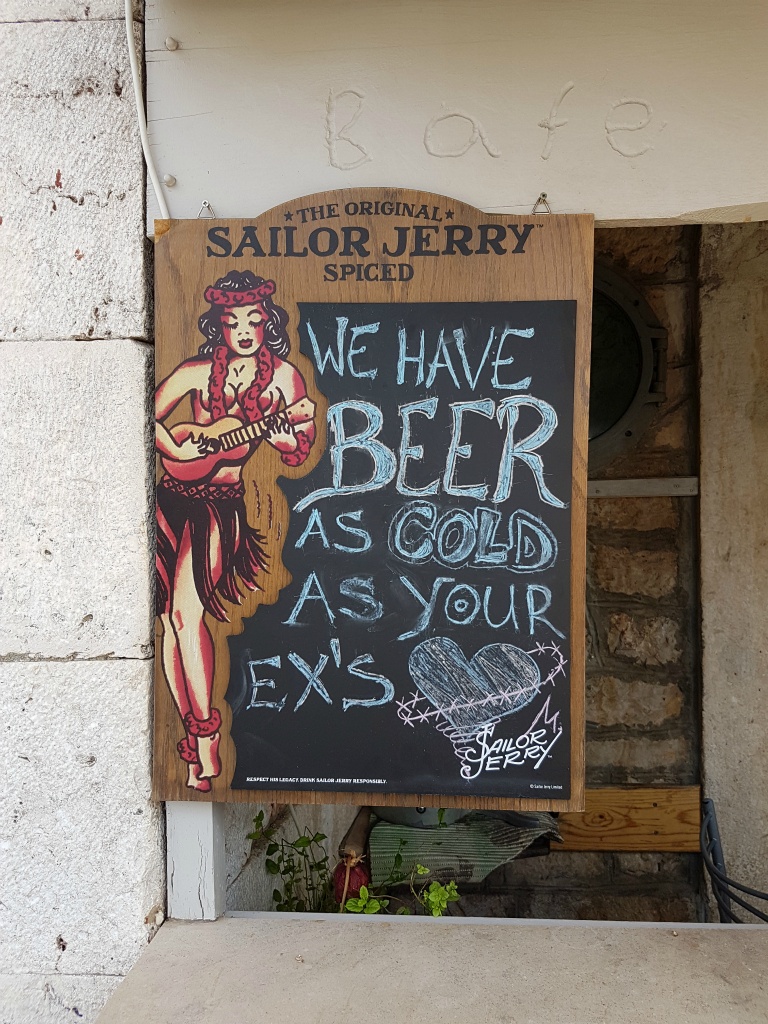 Bafe
★THE ORIGINAL★
SAILOR JERRY™
SPICED
WE HAVE
BEER
AS COLD
AS YOUR
EX'S
SAILOR
JERRY™
RESPECT HIS LEGACY. DRINK SAILOR JERRY RESPONSIBLY.
© Sailor Jerry Limited